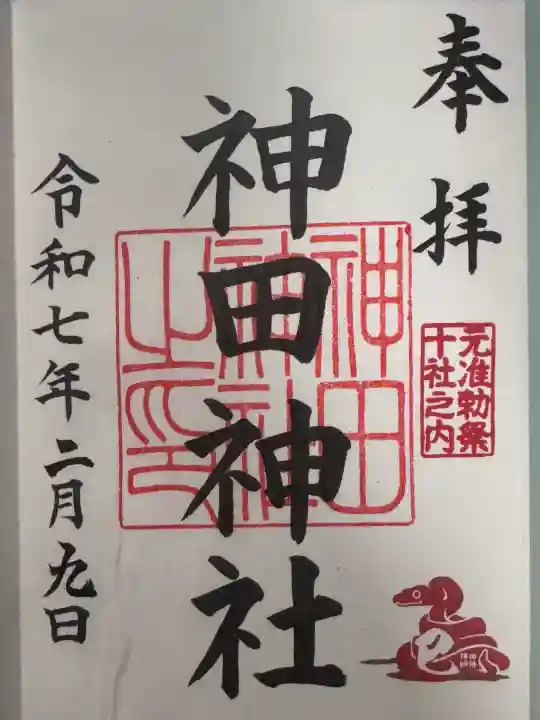 奉拝
元准勅祭
十社之内
巳
神田神社
神田
神社
之印
令和七年二月九日